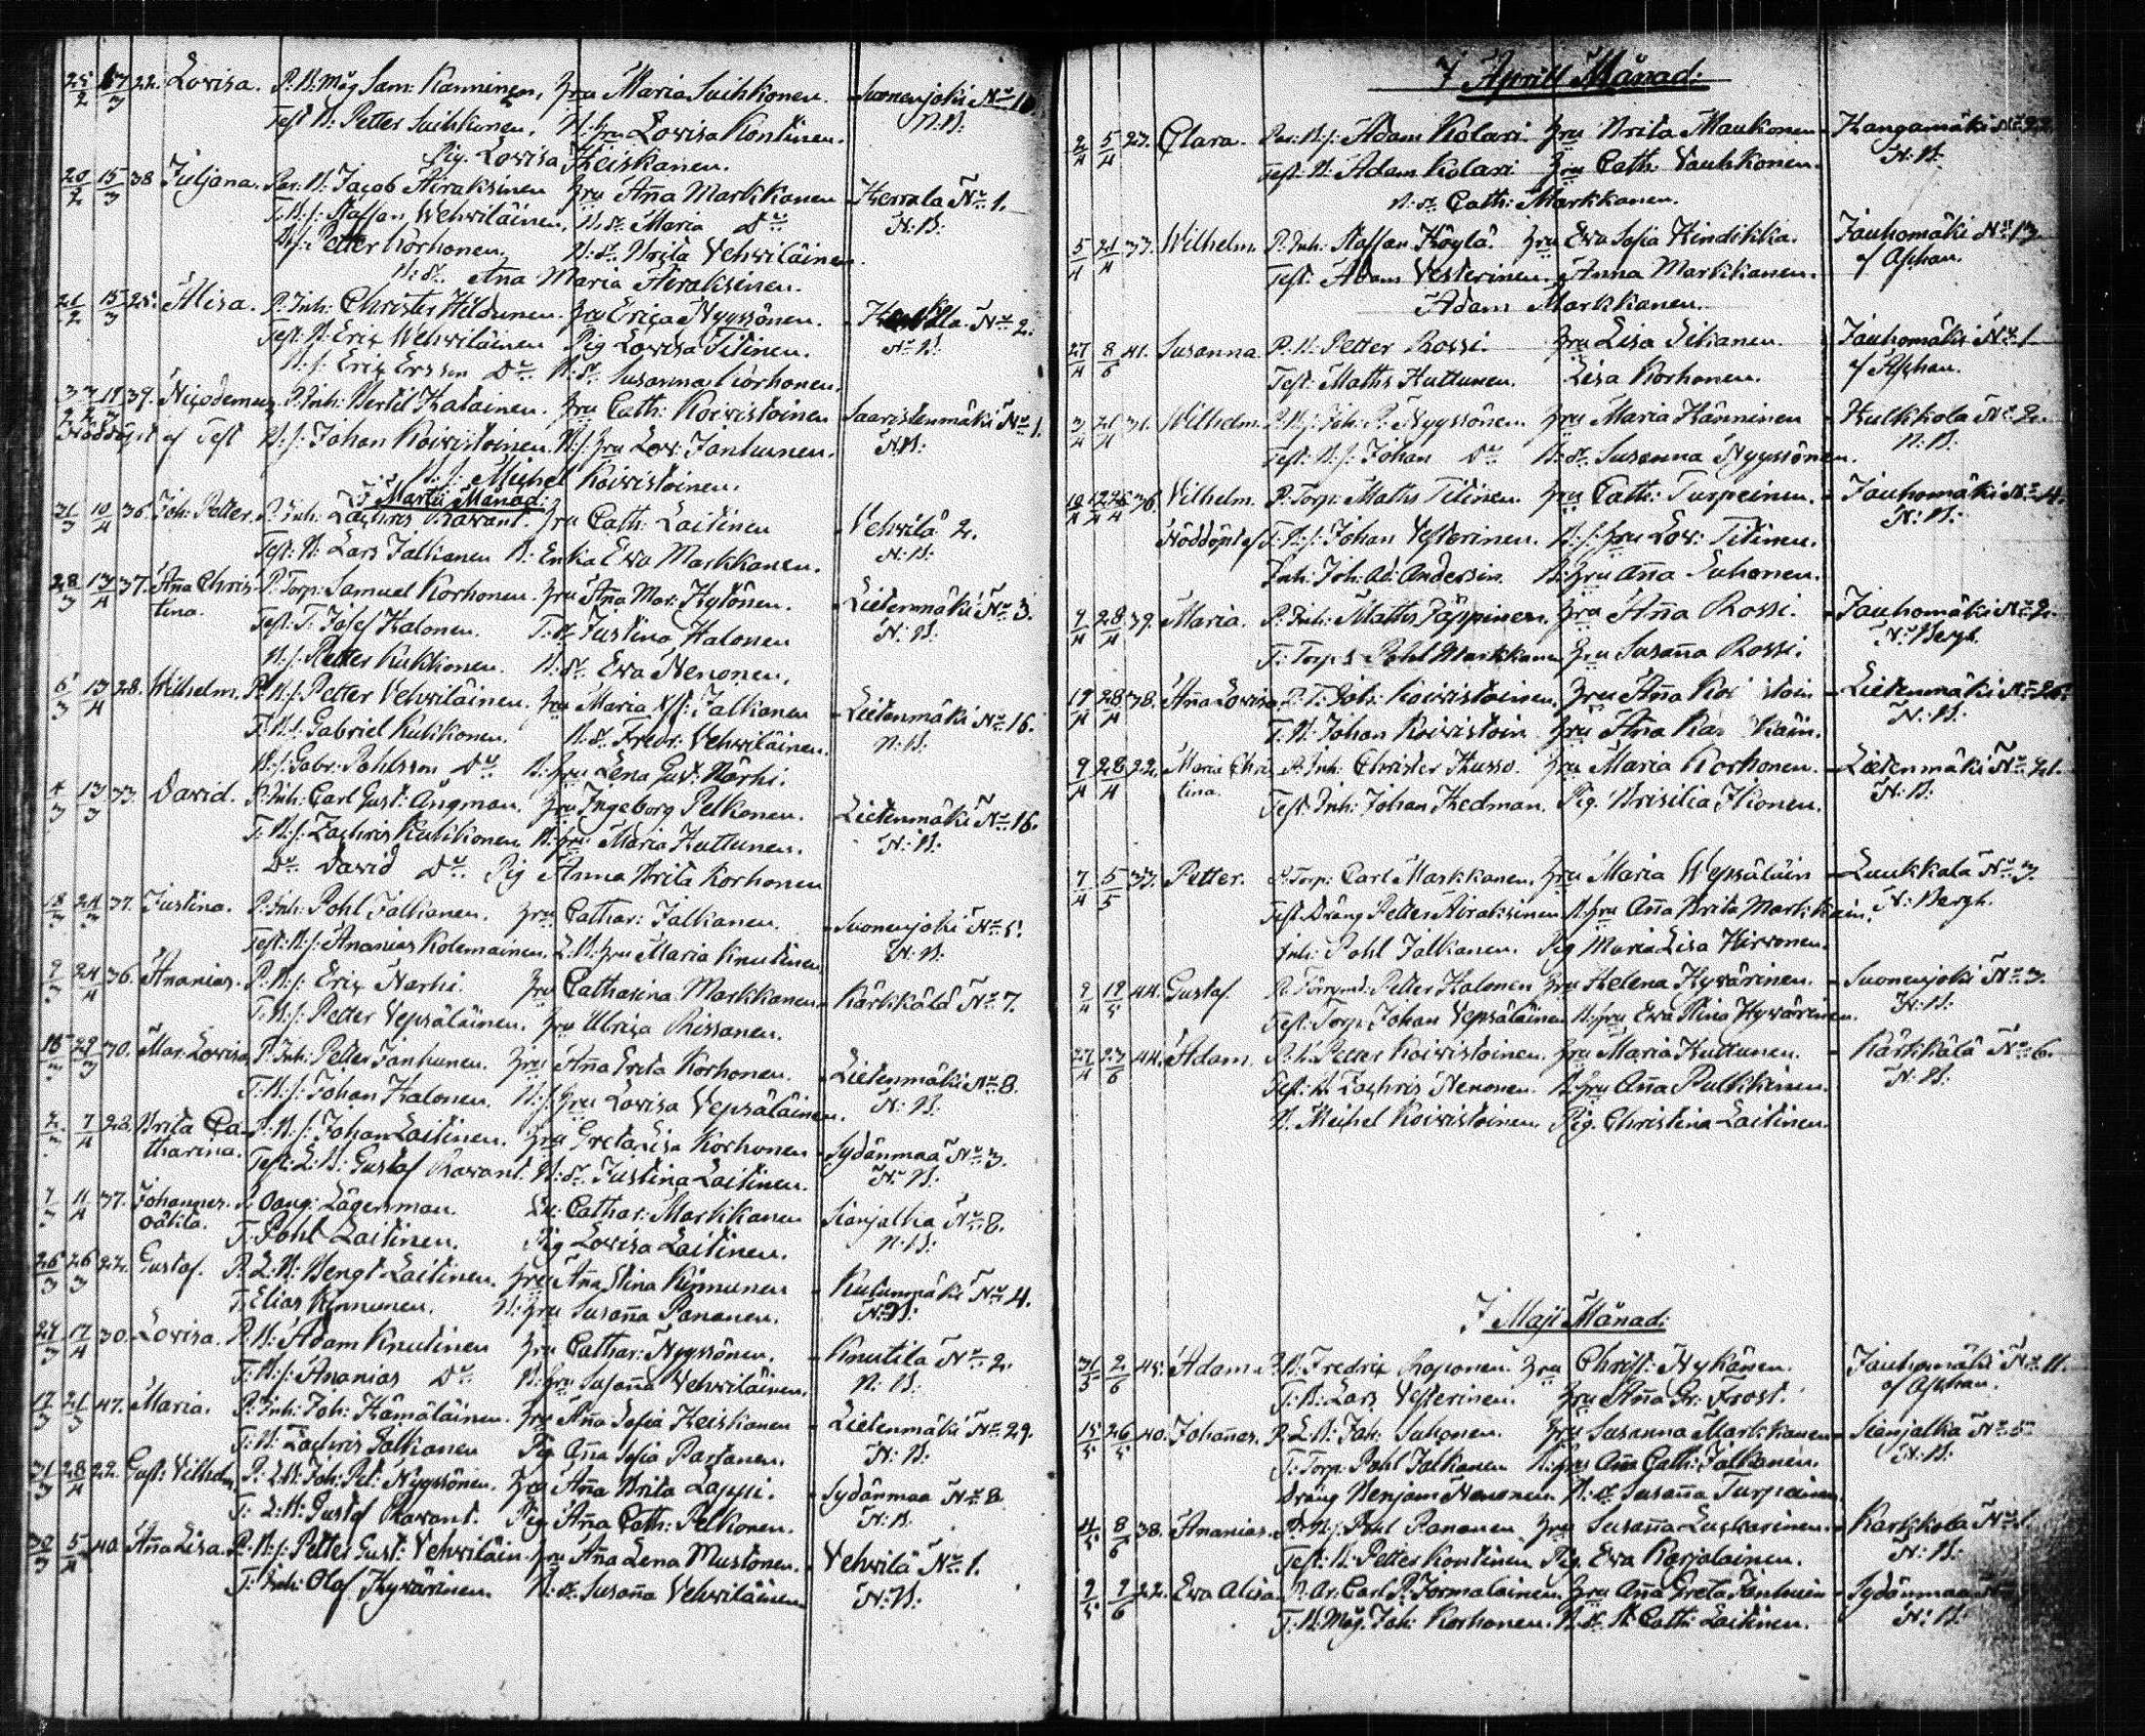 25/2 17/3 22. Lovisa. P. B. Måg Sam: Kanninen, hru Maria Suihkonen. Suonenjoki No 10.
Test B: Petter Suihkonen. B: hru Lovisa Kontinen. N.B:
Pig. Lovisa Heiskanen.
20/2 15/3 38 Juljana. Par: B. Jacob Airaksinen hru Aña Markkanen Herrala No 1.
T. B: f: Staffan Vehviläinen, B: dr Maria Do N: B:
B: f: Petter Korhonen, B: dr Brita Vehviläinen.
B: dr Aña Maria Airaksinen.
21/2 15/3 25. Alisa. P. Inh: Christer Hildunen. hru Erica Nyyssönen. No 2.
Test. B. Eric Wehviläinen Pig Lovisa Titinen. N: B:
B: f: Eric Ersson Do B: dr Susanna Korhonen.
39. Nicodemus P. Inh: Bertil Hatainen. hru Cath: Koivistoinen Saaristenmäki No 1.
Nöddöpt af Test B: f: Johan Koivistoinen. B: f: hru Lov: Janhunen. N.B:
B: f: Michel Koivistoinen.
I Martii Månad:
31/3 10/4 36. Joh: Petter. P. Inh: Zachris Ravant. hru Cath: Laitinen Vehvilä 2.
Test: B: Lars Jalkanen B: Enka Ewa Markkanen. N: B:
28/3 13/4 37. Aña Chris- P. Torp: Samuel Korhonen. hru Aña Mar: Hytönen. Lietenmäki No 3.
tina. Test: T: Josef Halonen. T: dr Justina Halonen N: B:
B: f: Petter Kukkonen. B: dr Ewa Nenonen.
6/3 13/4 28. Wilhelm. P: B: f: Petter Vehviläinen. hru Maria Jalkanen Lietenmäki No 16.
T: B: f: Gabriel Kukkonen. B: dr Fredr: Vehviläinen. N: B:
B: f: Gabr: Pohlsson Do B: hru Lena Gust: Närhi.
4/3 13/3 33. David. P. Inh: Carl Gust: Ångman. hru Ingeborg Pelkonen. Lietenmäki No 16.
T: B: f: Zachris Kukkonen B: hru Maria Huttunen. N: B:
Do David Do Pig Anna Brita Korhonen
18/3 24/3 37. Justina. P. Inh: Pohl Jalkanen. hru Cathar: Jalkanen. Suonenjoki No 5.
Test: B: f: Ananias Kolemainen. L: B: hru Maria Knutinen N: B:
9/3 24/4 36. Ananias. P: B: f: Eric Narhi. hru Catharina Markkanen Kärkkälä No 7.
T: B: f: Petter Vepsäläinen. hru Ulrica Rissanen.
29/3 30. Mar: Lovisa P. Inh: Petter Janhunen. hru Aña Brita Korhonen. Lietenmäki No 8.
T: B: f: Johan Halonen. B: f: hru Lovisa Vepsäläinen. N: B:
7/4 28. Brita Ca- P: B: f: Johan Laitinen. hru Greta Lisa Korhonen Sydänmaa No 3.
tharina. Test: L: B: Gustaf Ravant. B: dr Justina Laitinen. N: B:
7/3 11/4 37. Johannes. Lägersman. Cathar: Markkanen Sianjalka No 8.
oäkta. T: Pohl Laitinen. Pig Lovisa Laitinen. N: B:
26/3 26/3 22. Gustaf. P. L: B: Bengt Laitinen. hru Aña Stina Kinnunen Kutunmäki No 4.
T: Elias Kinnunen. B: hru Susaña Pananen. N: B:
24/3 17/4 30. Lovisa. P. B: Adam Knutinen hru Cathar: Nyyssönen. Knutila No 2.
T: B: f: Ananias Do B: hru Susaña Vehviläinen. N: B:
17/3 21/3 47. Maria. P. Inh: Joh: Hämäläinen. hru Aña Sofia Heiskanen Lietenmäki No 29.
T: B: Zachris Jalkanen Pig Aña Sofia Partanen. N: B:
31/3 28/4 22. Gust: Vilhelm P. L: B: Joh: Pet: Nyyssönen. hru Aña Brita Lappi. Sydänmaa No 8.
T: L: B: Gustaf Ravant. Pig Aña Cath: Pelkonen. N: B:
30/3 5/4 40. Aña Lisa. P. B: f: Petter Gust: Vehviläin. hru Aña Lena Mustonen. Vehvilä No 1.
T: Inh: Olof Hyvärinen. B: dr Susaña Vehviläinen N: B:
I Aprill Månad:
2/4 5/4 27. Clara. Par: B: f: Adam Kolari hru Brita Maukonen Kangamäki No 22.
Test: B: Adam Kolari hru Cath: Vauhkonen. N: B:
B: dr Cath: Markkanen.
5/4 21/4 37. Wilhelm. P. Inh: Staffan Köylä. hru Ewa Sofia Hindikka. Jauhomäki No 13
Test: Adam Vesterinen. Anna Markkanen. af Asphan.
Adam Markkanen.
27/4 8/6 41. Susanna P. B: Petter Rossi. hru Lisa Sikanen. Jauhomäki No 1
Test: Maths Huttunen. Lisa Korhonen. af Asphan.
3/4 21/4 31. Wilhelm. P. B: f: Joh: P: Nyyssönen hru Maria Hänninen Kulkkola No 2.
Test: B: f: Johan Do B: dr Susanna Nyyssönen. N: B:
36. Vilhelm. P. Torp: Maths Titinen. hru Cath: Turpeinen. Jauhomäki No 4.
Nöddöpt af T: B: f: Johan Vesterinen. B: f: hru Lov: Titinen. N: B:
Inh: Joh: Ad: Andersin. B: hru Aña Suhonen.
9/4 28/4 39. Maria. P. Inh: Maths Päppinen. hru Aña Rossi. Jauhomäki No 2.
T: Torp: Pohl Markkanen hru Susaña Rossi. N: Bergh.
19/4 28/4 38. Aña Lovisa P. T: Joh: Koivistoinen. hru Aña Lietenmäki No 26.
T: B: Johan Koivistoin hru Aña N: B:
9/4 28/4 22. Maria Chri- P. Inh: Christer Husso. hru Maria Korhonen. Lietenmäki No 21.
tina. Test Inh: Johan Hedman. Pig. Brisilia Hionen. N: B:
7/4 5/5 33. Petter. P. Torp: Carl Markkanen. hru Maria Wepsäläin Luukkala No 3.
Test. Dräng Petter Airaksinen B: hru Aña Brita Markkain. N: Bergh.
Inh: Pohl Jalkanen. Pig Maria Lisa Hirvonen.
9/4 19/5 44. Gustaf. P. Petter Halonen hru Helena Hyvärinen. Suonenjoki No 3.
Test: Torp. Johan Vepsäläinen B: hru Ewa Stina Hyvärinen. N: B:
27/4 23/6 44. Adam. P. B. Petter Koivistoinen. hru Maria Huttunen. Kärkkälä No 6.
Test: B. Zachris Nenonen. B: hru Aña Pulkkinen. N: B:
B. Michel Koivistoinen. Pig. Christina Laitinen.
I Maji Månad:
31/5 2/6 45. Adam P. B: Fredric Roponen. hru Christ: Nykänen. Jauhomäki No 11.
T: B: Lars Vesterinen. hru Aña Gr: Frost. af Asphan.
15/5 26/5 40. Johañes. P. L: B: Joh: Suhonen. hru Susanna Markkanen Sianjalka No 5
T: Torp. Pohl Jalkanen B: hru Aña Cath: Jalkanen. N: B:
Dräng Benjam Nenonen B: dr Susaña Turpeainen
4/5 8/6 38. Ananias. P. B: f: Pohl Pananen hru Susaña Laskarinen. Karkkola No 1.
Test: B: Petter Kontinen Pig. Ewa Karjalainen. N: B:
9/5 9/6 22. Ewa Alisa P. Ar: Carl P. Tormalainen hru Aña Greta Janhunen Sydänmaa
T: B. Måg. Joh: Korhonen. B: dr Cath: Laitinen. N: B: